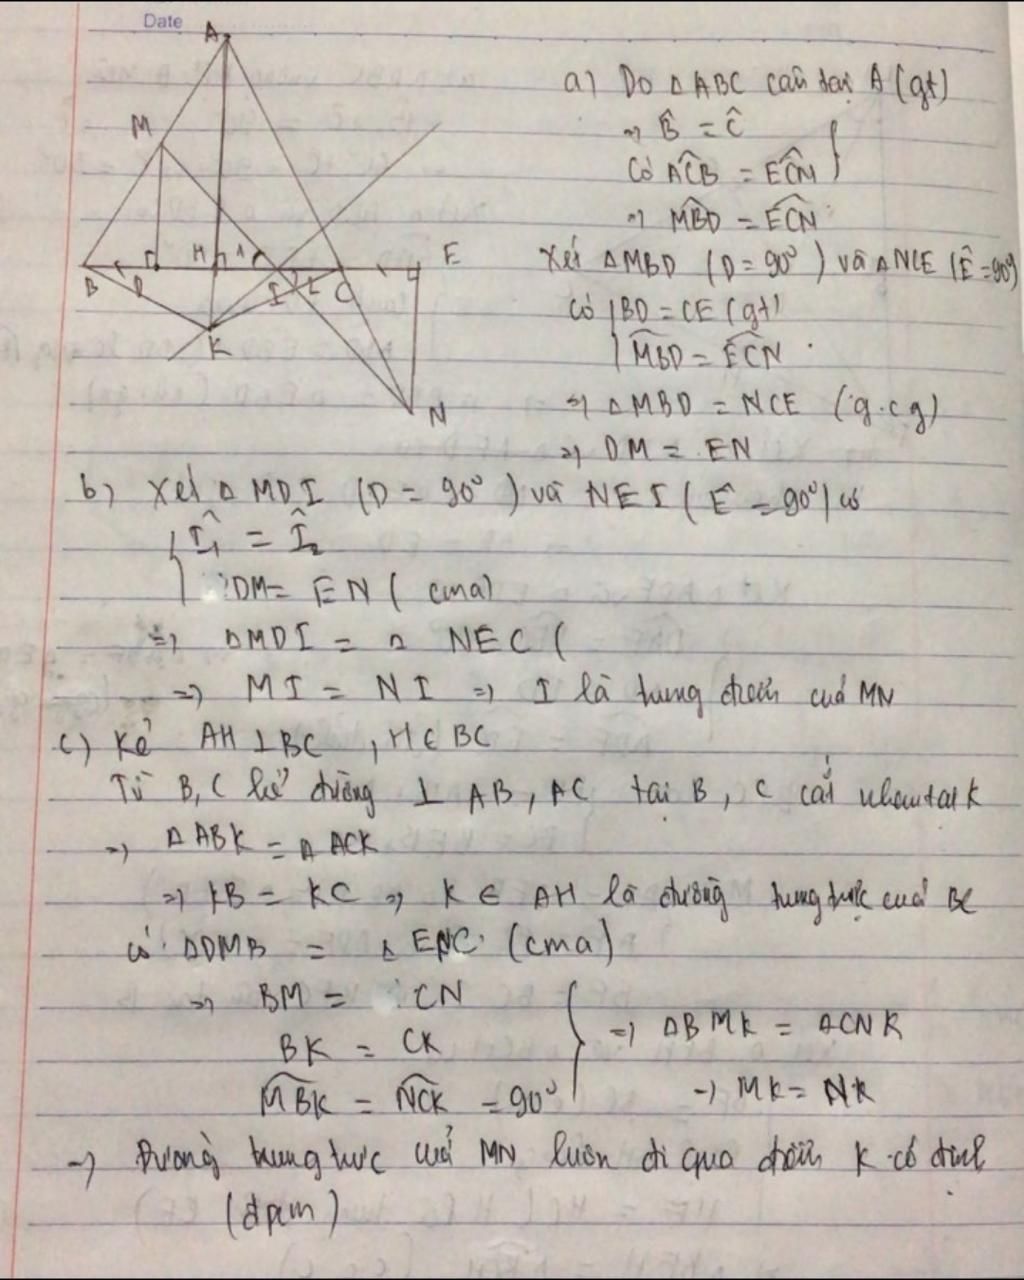 Date
A
M
B
D
H
1
I
2
C
E
K
N
a) Do △ABC cân tại A (gt)
⇒ B̂ = Ĉ
Có ACB = ECN
⇒ MBD = ECN
Xét △MBD (D = 90°) và △NCE (Ê = 90°)
Có BD = CE (gt)
MBD = ECN
⇒ △MBD = NCE (g.c.g)
⇒ DM = EN
b) Xét △ MDI (D = 90°) và NEI (Ê = 90°) có
Î₁ = Î₂
DM = EN (cma)
⇒ △MDI = △ NEC (
⇒ MI = NI ⇒ I là trung điểm của MN
c) Kẻ AH ⊥ BC , H ∈ BC
Từ B, C kẻ đường ⊥ AB, AC tại B, C cắt nhau tại K
⇒ △ABK = △ACK
⇒ KB = KC ⇒ K ∈ AH là đường trung trực của BC
có △DMB = △ENC (cma)
⇒ BM = CN
BK = CK
MBK = NCK = 90°
⇒ △BMK = △CNK
⇒ MK = NK
⇒ Đường trung trực của MN luôn đi qua điểm K cố định
(đpcm)